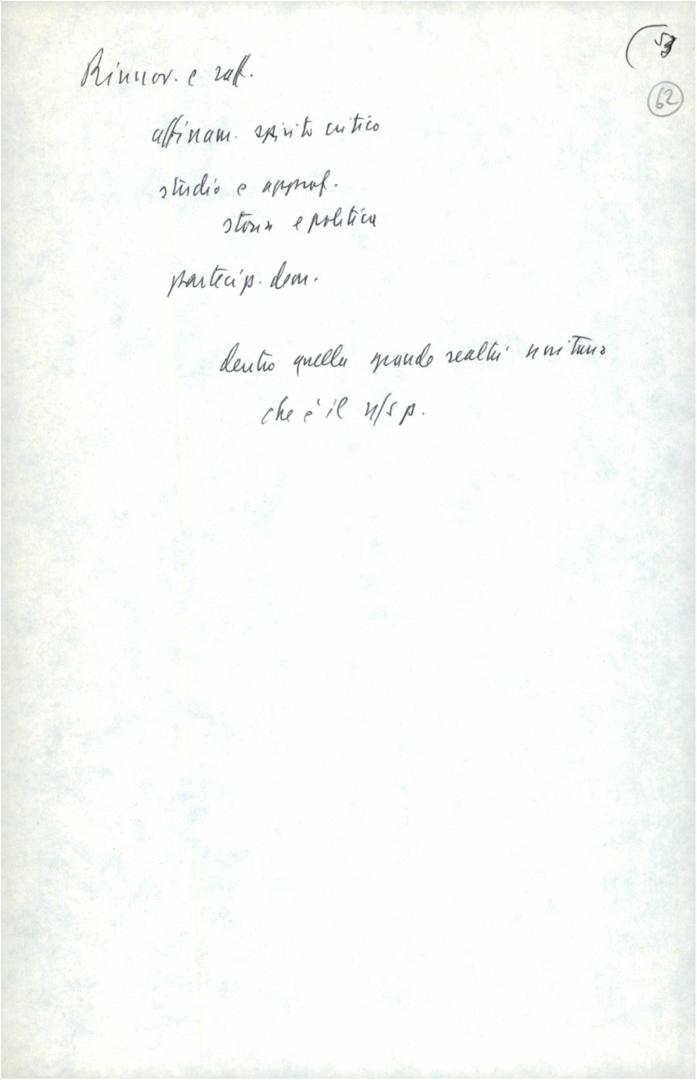 62
Rinnov. e raff.
affinam. spirito critico
studio e approf.
storia e politica
partecip. dem.
dentro quella grande realtà unitaria
che è il n/s p.